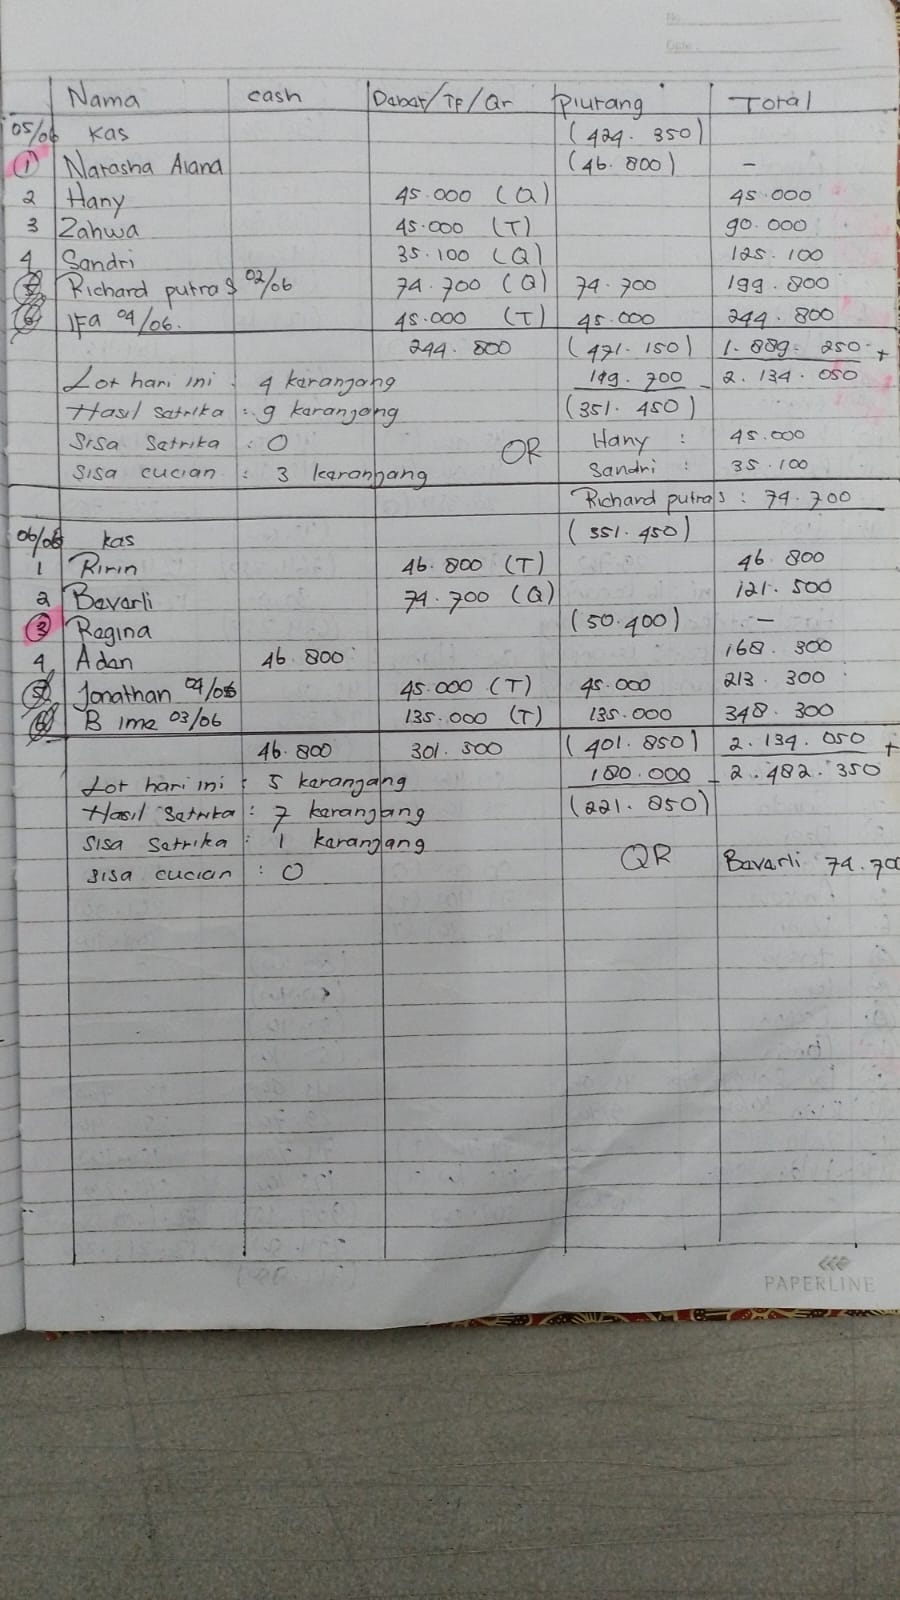 No.
Date
Nama cash Dabat/TF/Qr piutang Total
05/06 kas (424.350)
1 Natasha Alana (46.800) -
2 Hany 45.000 (Q) 45.000
3 Zahwa 45.000 (T) 90.000
4 Sandri 35.100 (Q) 125.100
5 Richard putra S 02/06 74.700 (Q) 74.700 199.800
6 IFa 04/06. 45.000 (T) 45.000 244.800
244.800 (471.150) 1.889.250 +
Lot hari ini : 4 karanjang 119.700 - 2.134.050
Hasil Satrika : 9 karanjang (351.450)
Sisa Satrika : 0 QR Hany : 45.000
Sisa cucian : 3 karanjang Sandri : 35.100
Richard putra S : 74.700
06/06 kas (351.450)
1 Ririn 46.800 (T) 46.800
2 Bavarli 74.700 (Q) 121.500
3 Ragina (50.400) -
4 Adan 46.800 168.300
5 Jonathan 04/06 45.000 (T) 45.000 213.300
6 Bima 03/06 135.000 (T) 135.000 348.300
46.800 301.500 (401.850) 2.134.050 +
Lot hari ini : 5 karanjang 180.000 - 2.482.350
Hasil Satrika : 7 karanjang (221.850)
Sisa Satrika : 1 karanjang
Sisa cucian : 0 QR Bavarli 74.70
PAPERLINE